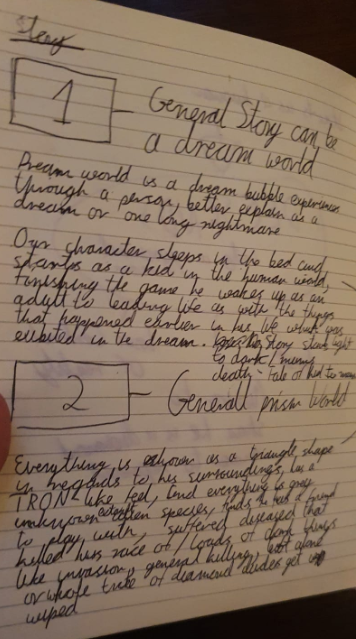 Story
1
General Story can be
a dream world
Dream world is a dream bubble experiences
through a person, better explain as a
dream or one long nightmare
Our character sleeps in the bed and
starts as a kid in the human world,
finishing the game he wakes up as an
adult to leading life as with the things
that happened earlier in his life which was
exibited in the dream. story starts light
to dark /
death - tale of kid to man
2
General prism World
Everything is shown as a triangle shape
in regards to his surroundings, has a
TRON like feel, and everything is grey
unknown alien species, finds he has a friend
to play with, suffered diseased that
killed his race of / loads of dark things
like invasion, general killing, left alone
or whole tribe of diamond dudes get
wiped